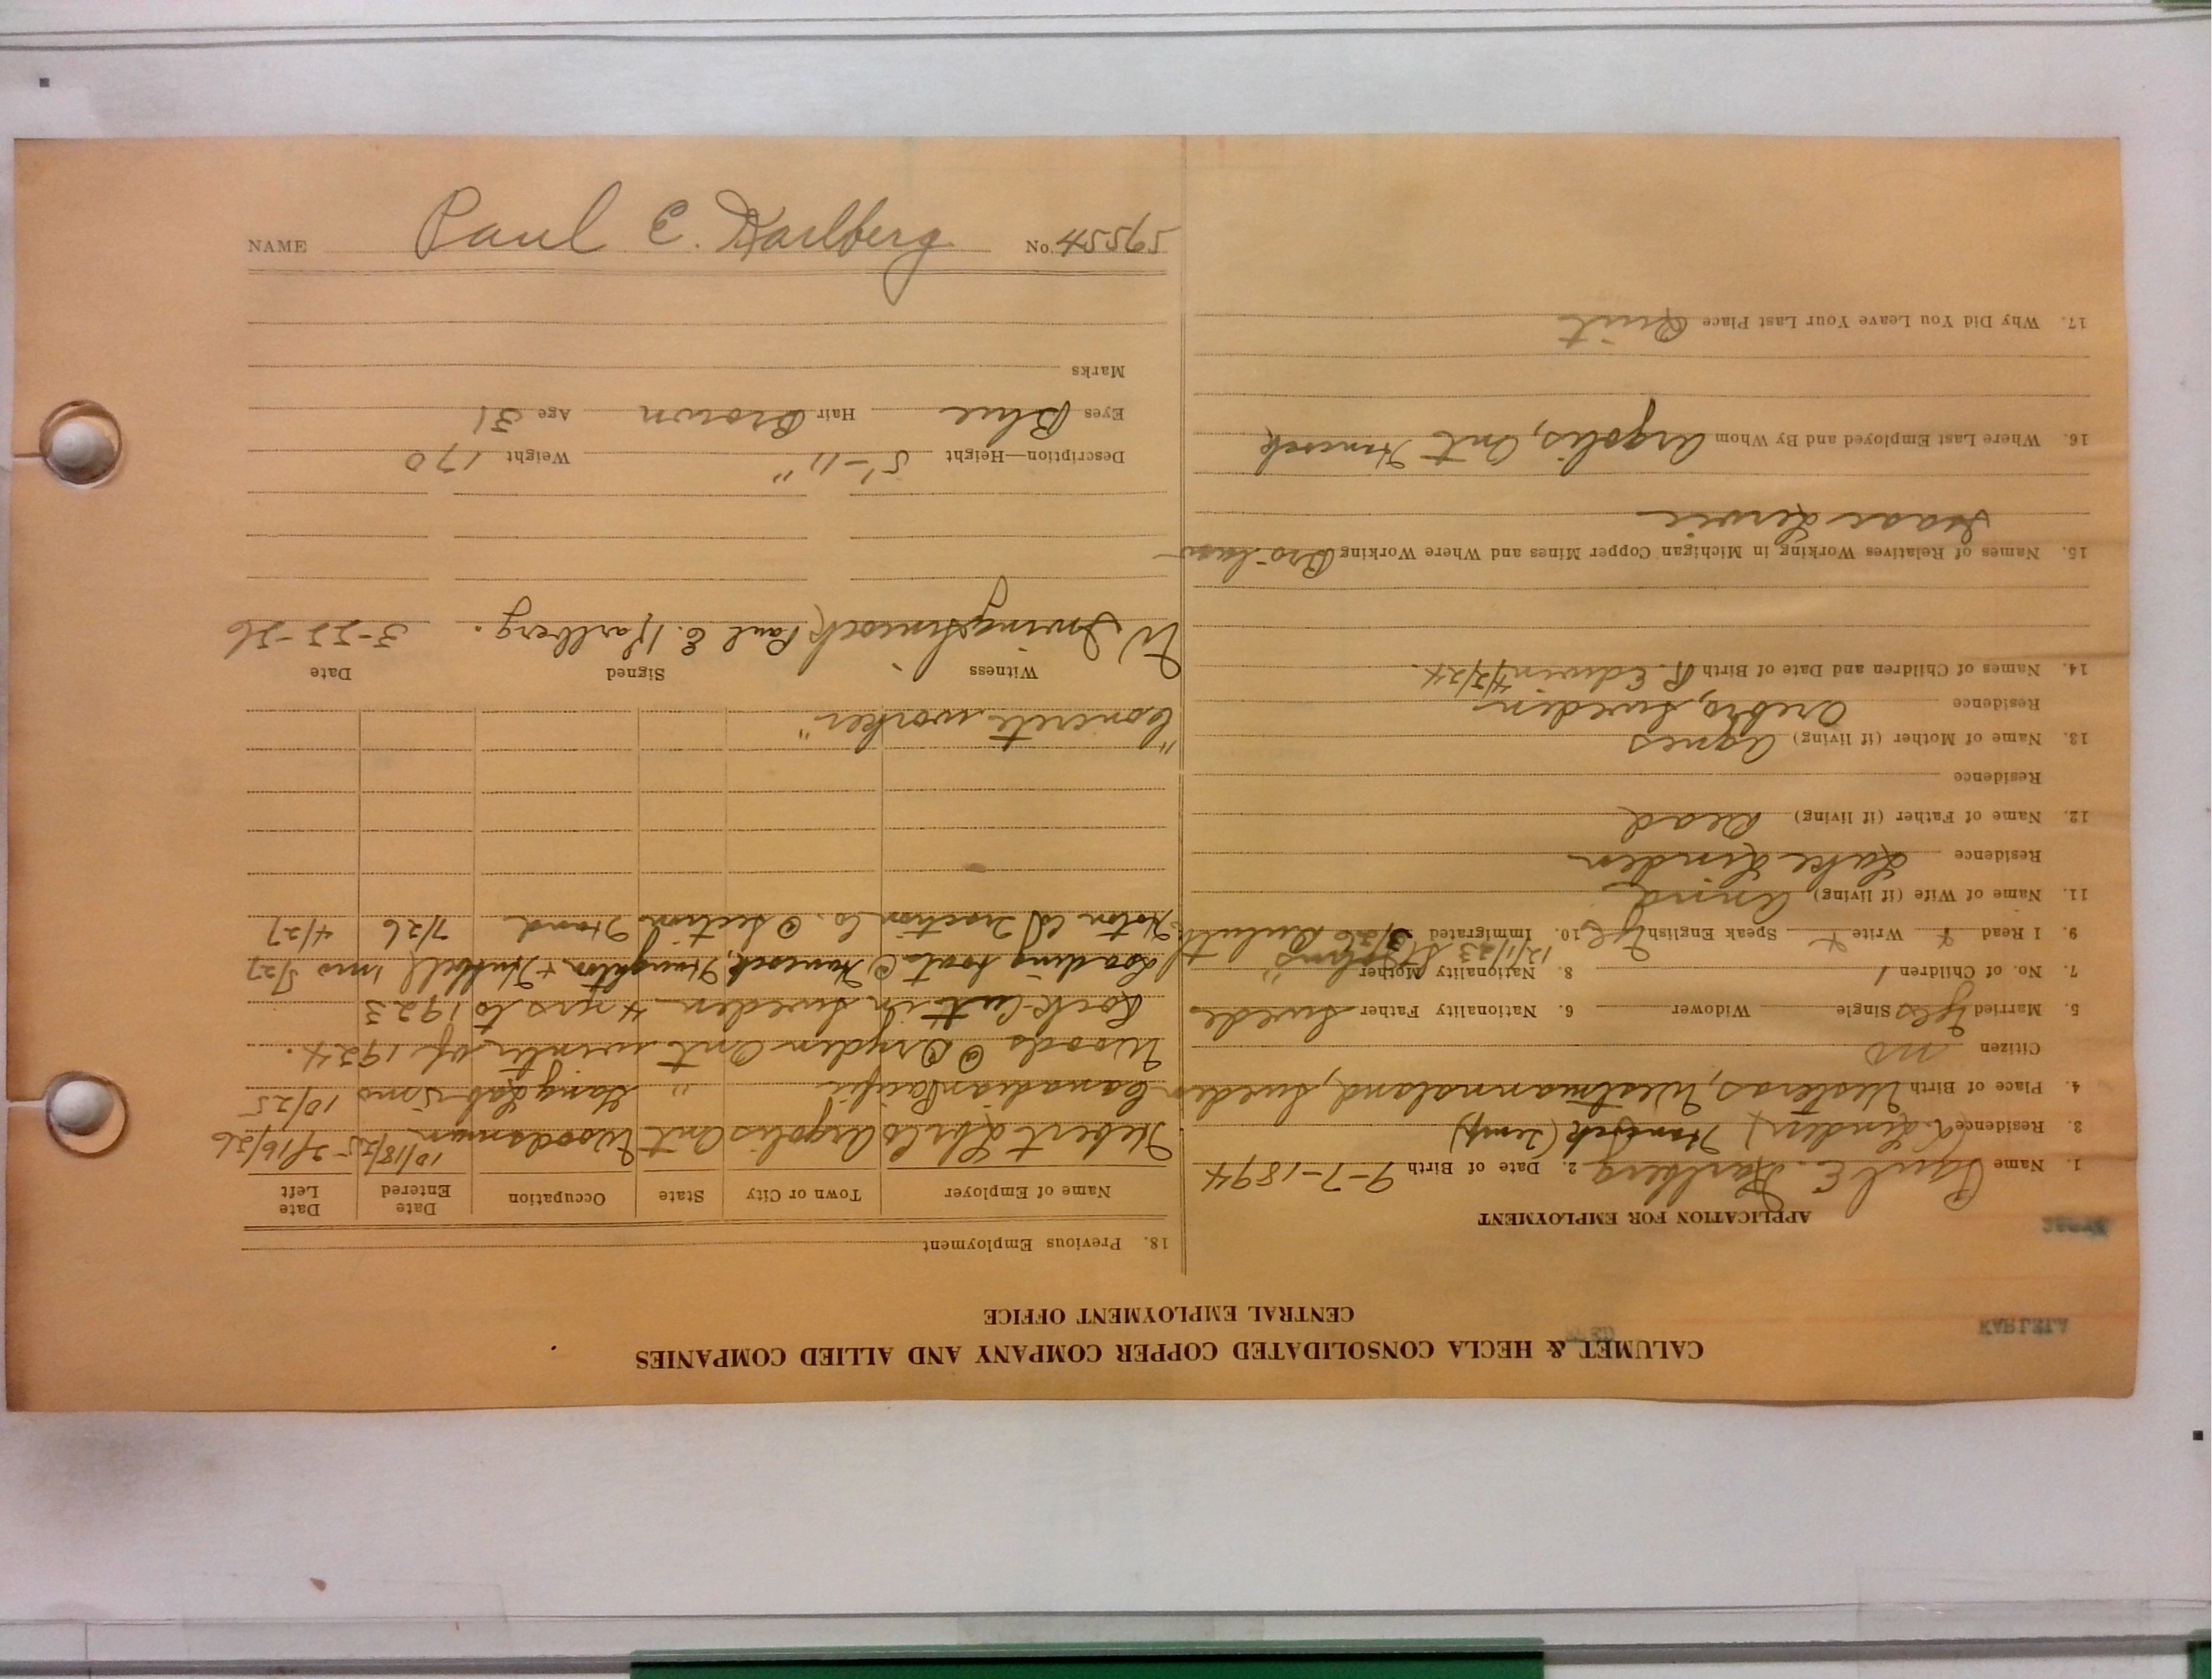 CALUMET & HECLA CONSOLIDATED COPPER COMPANY AND ALLIED COMPANIES
CENTRAL EMPLOYMENT OFFICE
APPLICATION FOR EMPLOYMENT
1. Name Paul E. Karlberg 2. Date of Birth 9-7-1894
3. Residence (L. Linden) Hancock (Temp)
4. Place of Birth Vesteras, Westmannland, Sweden
Citizen no
5. Married Yes Single Widower 6. Nationality Father Swede
7. No. of Children 1 8. Nationality Mother "
9. I Read Write Speak English Yes 10. Immigrated 12/1/23 3/26 Duluth
11. Name of Wife (if living)
Residence Lake Linden
12. Name of Father (if living) Dead
Residence
13. Name of Mother (if living) Agnes
Residence Orebro, Sweden
14. Names of Children and Date of Birth R. Edwin 4/3/24.
15. Names of Relatives Working in Michigan Copper Mines and Where Working Bro-law
Isaac
16. Where Last Employed and By Whom Argolis, Ont Hancock
17. Why Did You Leave Your Last Place Quit
18. Previous Employment
Name of Employer Town or City State Occupation Date Entered Date Left
Hebert Argolis Ont Woodsman 10/18/25 2/16/26
Canadian Pacific " Gang Lab 5 mo 10/25
Woods @ Dryden Ont winter of 1924.
Rock-Cut in Sweden 4 yrs to 1923
Loading boats @ Hancock, Houghton & Hubbell 1 mo 5/27
Hoton Co Traction Co. @ Section Hand 7/26 4/27
"Concrete worker"
Witness Signed Date
W. Paul E. Karlberg. 3-22-26
Description—Height 5'-11" Weight 170
Eyes Blue Hair Brown Age 31
Marks
NAME Paul E. Karlberg No. 59554